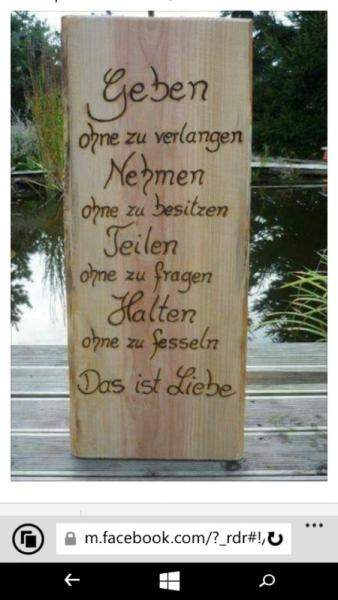 Geben
ohne zu verlangen
Nehmen
ohne zu besitzen
Teilen
ohne zu fragen
Halten
ohne zu fesseln
Das ist Liebe
m.facebook.com/?_rdr#!/